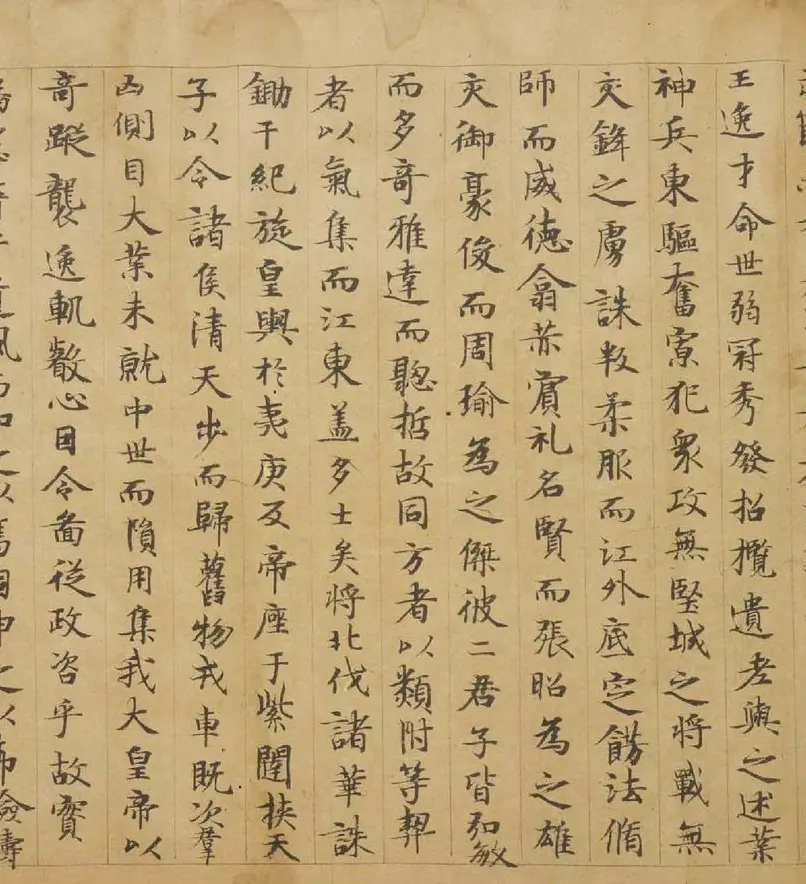 王逸才命世弱冠秀發招攬遺老與之述業
神兵東驅奮寡犯衆攻無堅城之將戰無
交鋒之虜誅叛柔服而江外底定餝法脩
師而威德翕赫賓礼名賢而張昭為之雄
交御豪俊而周瑜為之傑彼二君子皆弘敏
而多奇雅達而聰哲故同方者以類附等契
者以氣集而江東盖多士矣將北伐諸華誅
鋤干紀旋皇輿於夷庚反帝座于紫闥挾天
子以令諸侯清天步而歸舊物戎車既次羣
凶側目大業未就中世而隕用集我大皇帝以
奇蹤襲逸軌叡心因令啚從政咨乎故實
風而加之以篤固申之以節儉疇